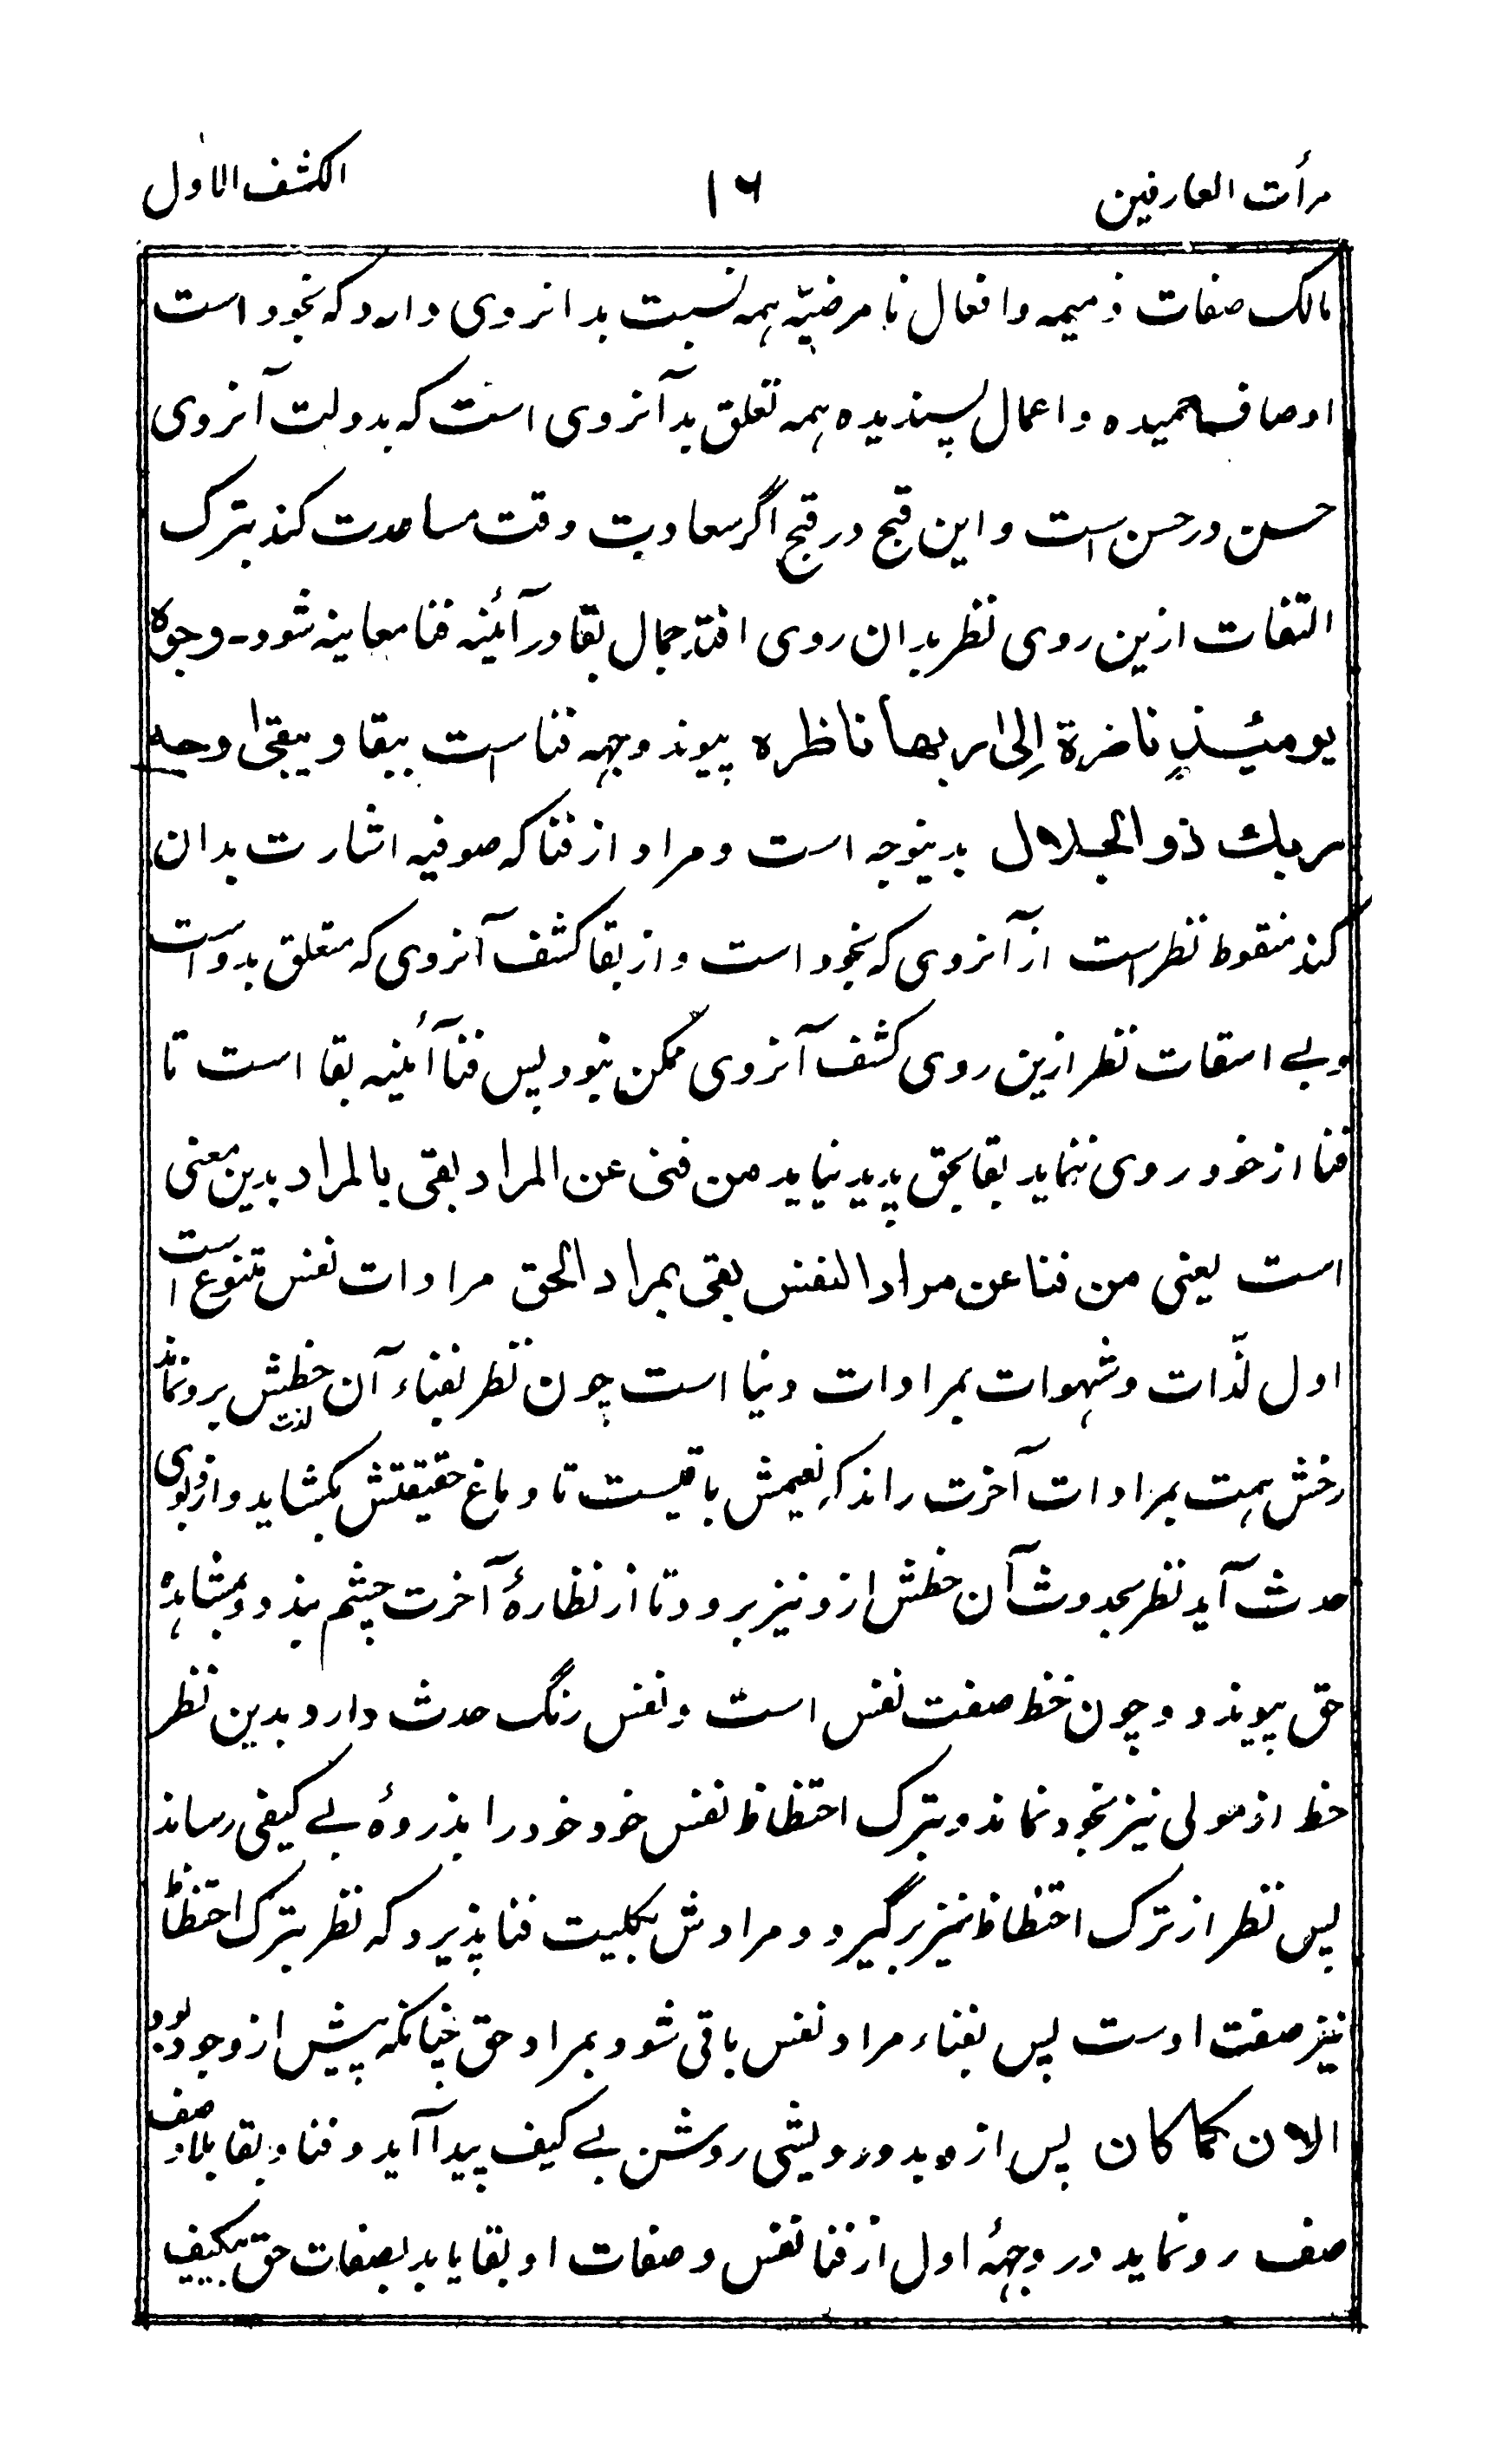 مرأت العارفین ١٦ الکشف الاول
مالک صفات ذمیمه وافعال نامرضیّه همه نسبت بدانروی دارد که بخود است
اوصاف حمیده واعمال پسندیده همه تعلق بدآنروی است که بدولت آنروی
حسن درحسن است واین قبح درقبح اگر سعادت وقت مساعدت کند بترک
التفات ازین روی نظر بدان روی افتد جمال بقا درآئینه فنا معاینه شود۔ وجوه
یومئذٍ ناضرة اِلیٰ ربها ناظره پیوند وجهه فنا است ببقا ویبقیٰ وجه
ربك ذو الجلال بدینوجه است ومراد از فنا که صوفیه اشارت بدان
کند سقوط نظر است از آنروی که بخود است واز بقا کشف آنروی که متعلق بدو است
وبے اسقات نظر ازین روی کشف آنروی ممکن نبود پس فنا آئینه بقا است تا
فنا از خود روی ننماید بقا بحق پدید نیاید من فنی عن المراد بقی بالمراد بدین معنی
است یعنی من فنا عن مراد النفس بقی بمراد الحق مرادات نفس متنوع است
اول لذّات وشهوات بمرادات دنیا است چون نظر بفناء آن حظش برو نماند
لذت
رخش همت بمرادات آخرت راند که نعیمش باقیست تا دماغ حقیقتش بکشاید وازو بوی
حدث آید نظر بحدوث آن حظش ازو نیز برود تا از نظارهٔ آخرت چشم بندد وبمشاهده
حق پیوندد وچون حظ صفت نفس است ونفس رنگ حدث دارد بدین نظر
حظ از مولی نیز بخود نماند وبترک احتظاظ نفس خود خود را بذروهٔ بے کیفی رساند
پس نظر از ترک احتظاظ نیز برگیرد ومرادش بکلیت فنا پذیرد که نظر بترک احتظاظ
نیز صفت اوست پس بفناء مراد نفس باقی شود بمراد حق چنانکه پیش از وجود بود
الان کما کان پس از دید درویشی روشن بے کیف پیدا آید وفنا وبقا بلا وصف
صف رونماید در وجههٔ اول از فنا نفس وصفات او بقا یابد بصفات حق بیکیف